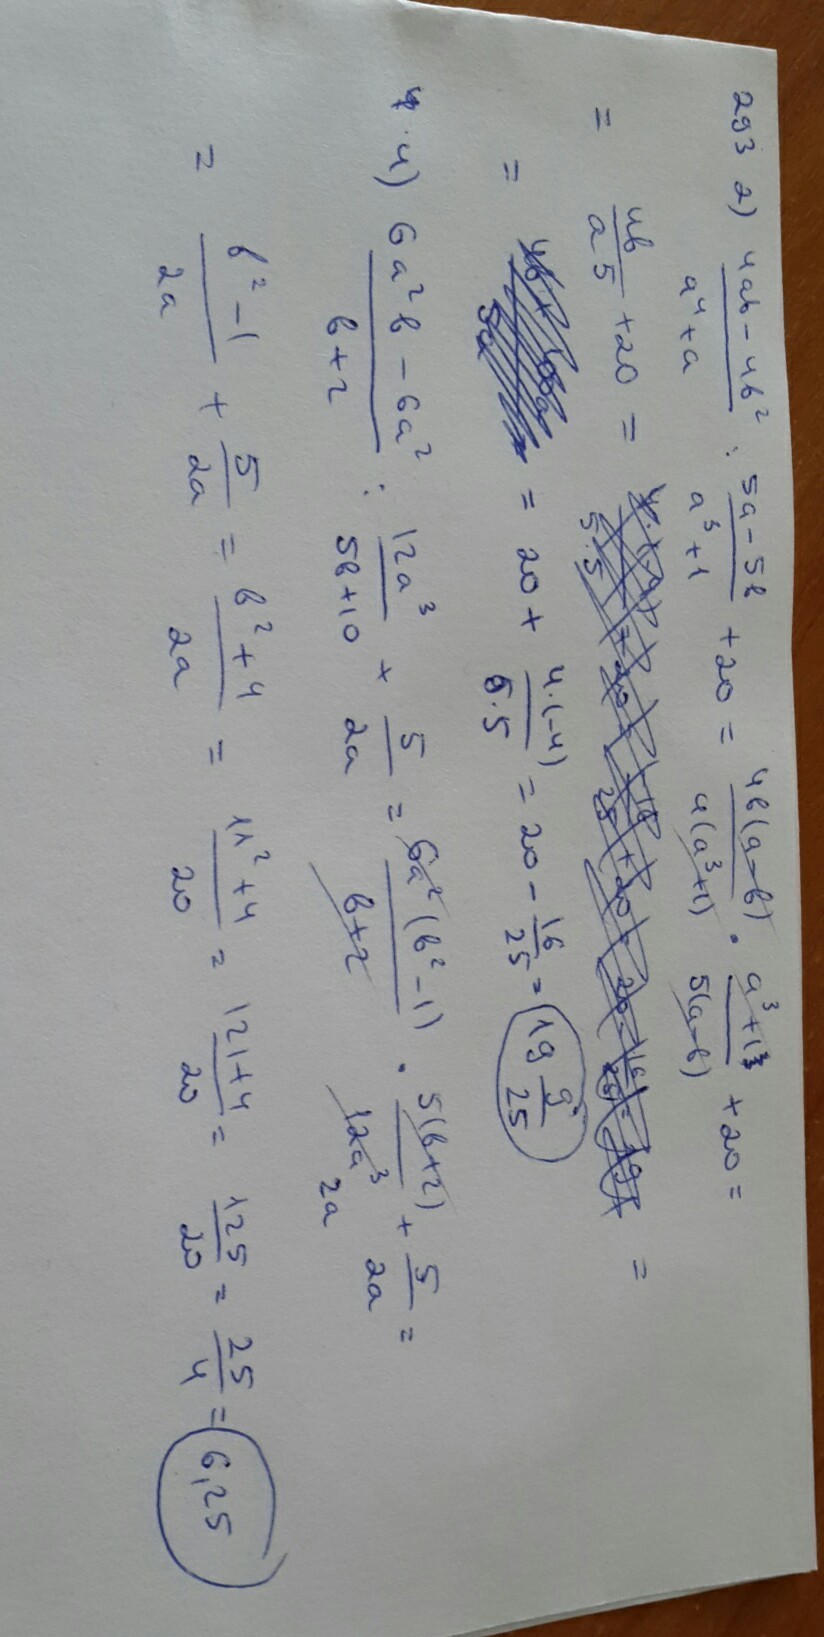 293 2) (4ab - 4b²)/(a⁴ + a) : (5a - 5b)/(a³ + 1) + 20 = 4b(a - b)/4(a³ + 1) · (a³ + 1)/5(a - b) + 20 =
= 4b/a5 + 20 = =
= = 20 + 4·(-4)/5·5 = 20 - 16/25 = 19 9/25
4) (6a²b - 6a²)/(b + 2) : 12a³/(5b + 10) + 5/2a = 6a²(b² - 1)/(b + 2) · 5(b + 2)/12a³ 2a + 5/2a =
= (b² - 1)/2a + 5/2a = (b² + 4)/2a = (11² + 4)/20 = (121 + 4)/20 = 125/20 = 25/4 = 6,25